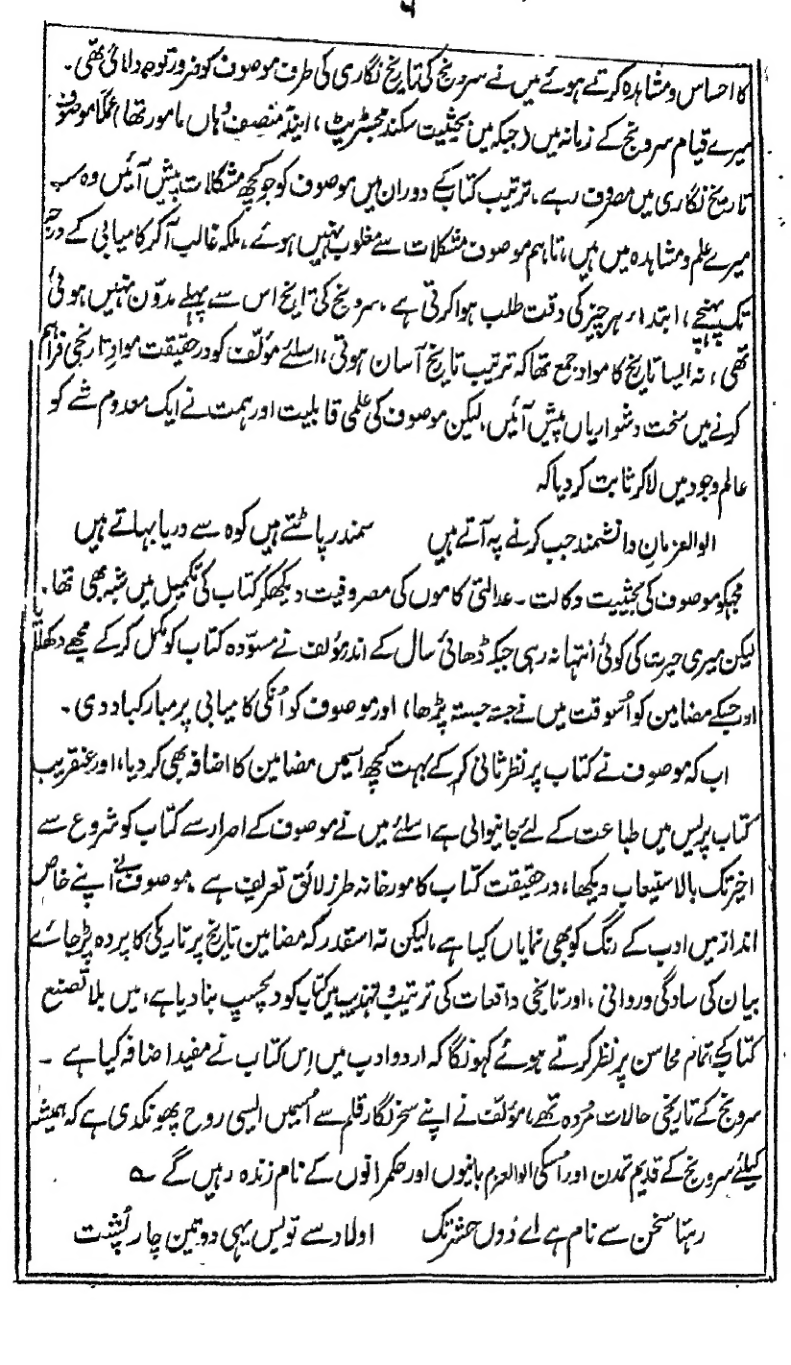 ۴
کا احساس و مشاہدہ کرتے ہوئے میں نے سرونج کی تاریخ نگاری کی طرف موصوف کو ضرور توجہ دلائی تھی۔
میرے قیام سرونج کے زمانہ میں (جبکہ میں بحیثیت سکنڈ مجسٹریٹ، اینڈ منصف وہاں مامور تھا) عملاً موصوف
تاریخ نگاری میں مصروف رہے، ترتیب کتاب کے دوران میں موصوف کو جو کچھ مشکلات پیش آئیں وہ سب
میرے علم و مشاہدہ میں ہیں، تاہم موصوف مشکلات سے مغلوب نہیں ہوئے، بلکہ غالب آکر کامیابی کے درجہ
تک پہنچے، ابتداء ہر چیز کی دقت طلب ہوا کرتی ہے، سرونج کی تاریخ اس سے پہلے مدوّن نہیں ہوئی
تھی، نہ ایسا تاریخ کا مواد جمع تھا کہ ترتیب تاریخ آسان ہوتی، اسلئے مؤلف کو درحقیقت مواد تاریخی فراہم
کرنے میں سخت دشواریاں پیش آئیں، لیکن موصوف کی علمی قابلیت اور ہمت نے ایک معدوم شے کو
عالم وجود میں لاکر ثابت کر دیا کہ
الوالعزمانِ دانشمند جب کرنے پہ آتے ہیں سمندر پاٹتے ہیں کوہ سے دریا بہاتے ہیں
مجھکو موصوف کی بحیثیت وکالت۔ عدالتی کاموں کی مصروفیت دیکھکر کتاب کی تکمیل میں شبہ بھی تھا۔
لیکن میری حیرت کی کوئی انتہا نہ رہی جبکہ ڈھائی سال کے اندر مؤلف نے مسوّدہ کتاب کو مکمل کر کے مجھے دکھلایا
اور جسکے مضامین کو اُسوقت میں نے جستہ جستہ پڑھا، اور موصوف کو اُنکی کامیابی پر مبارکباد دی۔
اب کہ موصوف نے کتاب پر نظر ثانی کر کے بہت کچھ اسمیں مضامین کا اضافہ بھی کر دیا، اور عنقریب
کتاب پریس میں طباعت کے لئے جانیوالی ہے اسلئے میں نے موصوف کے اصرار سے کتاب کو شروع سے
اخیر تک بالاستیعاب دیکھا، درحقیقت کتاب کا مورخانہ طرز لائق تعریف ہے، موصوف نے اپنے خاص
انداز میں ادب کے رنگ کو بھی نمایاں کیا ہے، لیکن نہ اسقدر کہ مضامین تاریخ پر تاریکی کا پردہ پڑ جائے
بیان کی سادگی و روانی، اور تاریخی واقعات کی ترتیب و تہذیب نے کتاب کو دلچسپ بنا دیا ہے، میں بلا تصنع
کتاب کے تمام محاسن پر نظر کرتے ہوئے کہونگا کہ اردو ادب میں اِس کتاب نے مفید اضافہ کیا ہے۔
سرونج کے تاریخی حالات مُردہ تھے، مؤلف نے اپنے سحر نگار قلم سے اُسمیں ایسی روح پھونکدی ہے کہ ہمیشہ
کیلئے سرونج کے قدیم تمدن اور اُسکی الوالعزم بانیوں اور حکمرانوں کے نام زندہ رہیں گے ؎
رہتا سخن سے نام ہے اے ذوقؔ حشر تک اولاد سے تو بس یہی دو تین چار پُشت